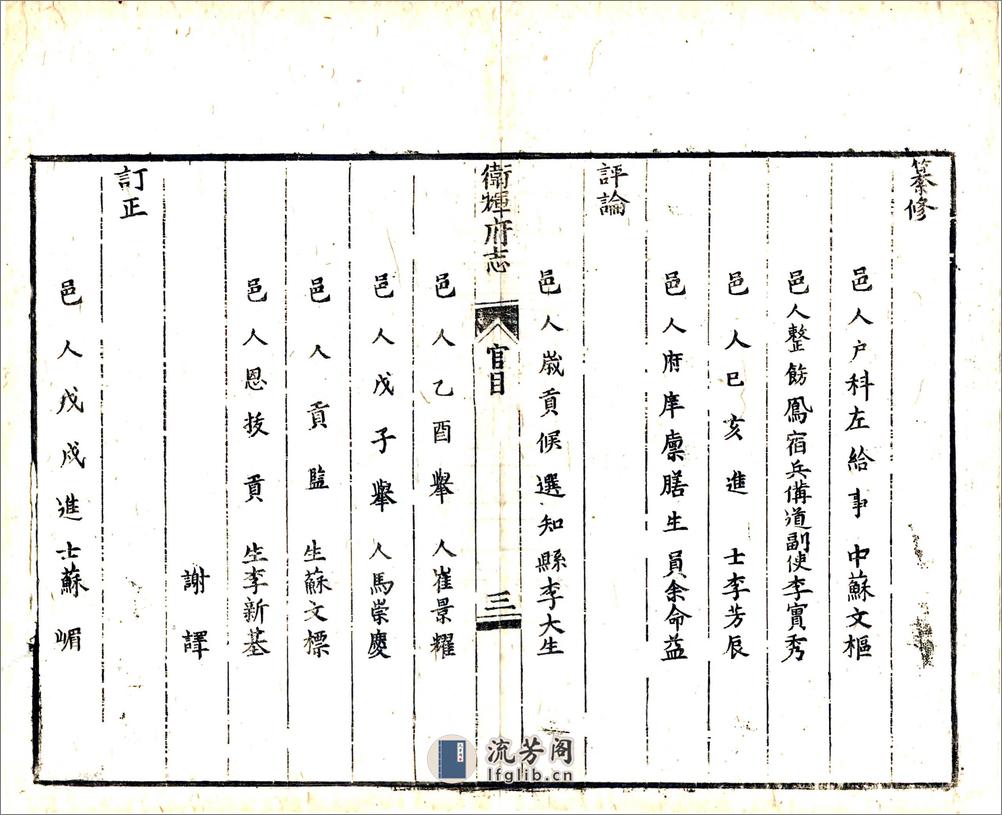 纂修
邑人户科左給事中蘇文樞
邑人整飭鳳宿兵備道副使李實秀
邑人巳亥進士李芳辰
邑人府庠廩膳生員余命益
評論
邑人歲貢候選知縣李大生
衛輝府志
官目
三
邑人乙酉舉人崔景耀
邑人戊子舉人馬崇慶
邑人貢監生蘇文標
邑人恩拔貢生李新基
謝譯
訂正
邑人戊戌進士蘇嵋
流芳阁
lfglib.cn